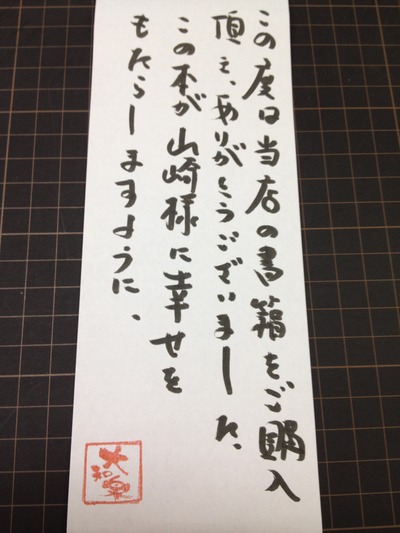 この度は当店の書籍をご購入
頂き、ありがとうございました。
この本が山崎様に幸せを
もたらしますように、
大和泉